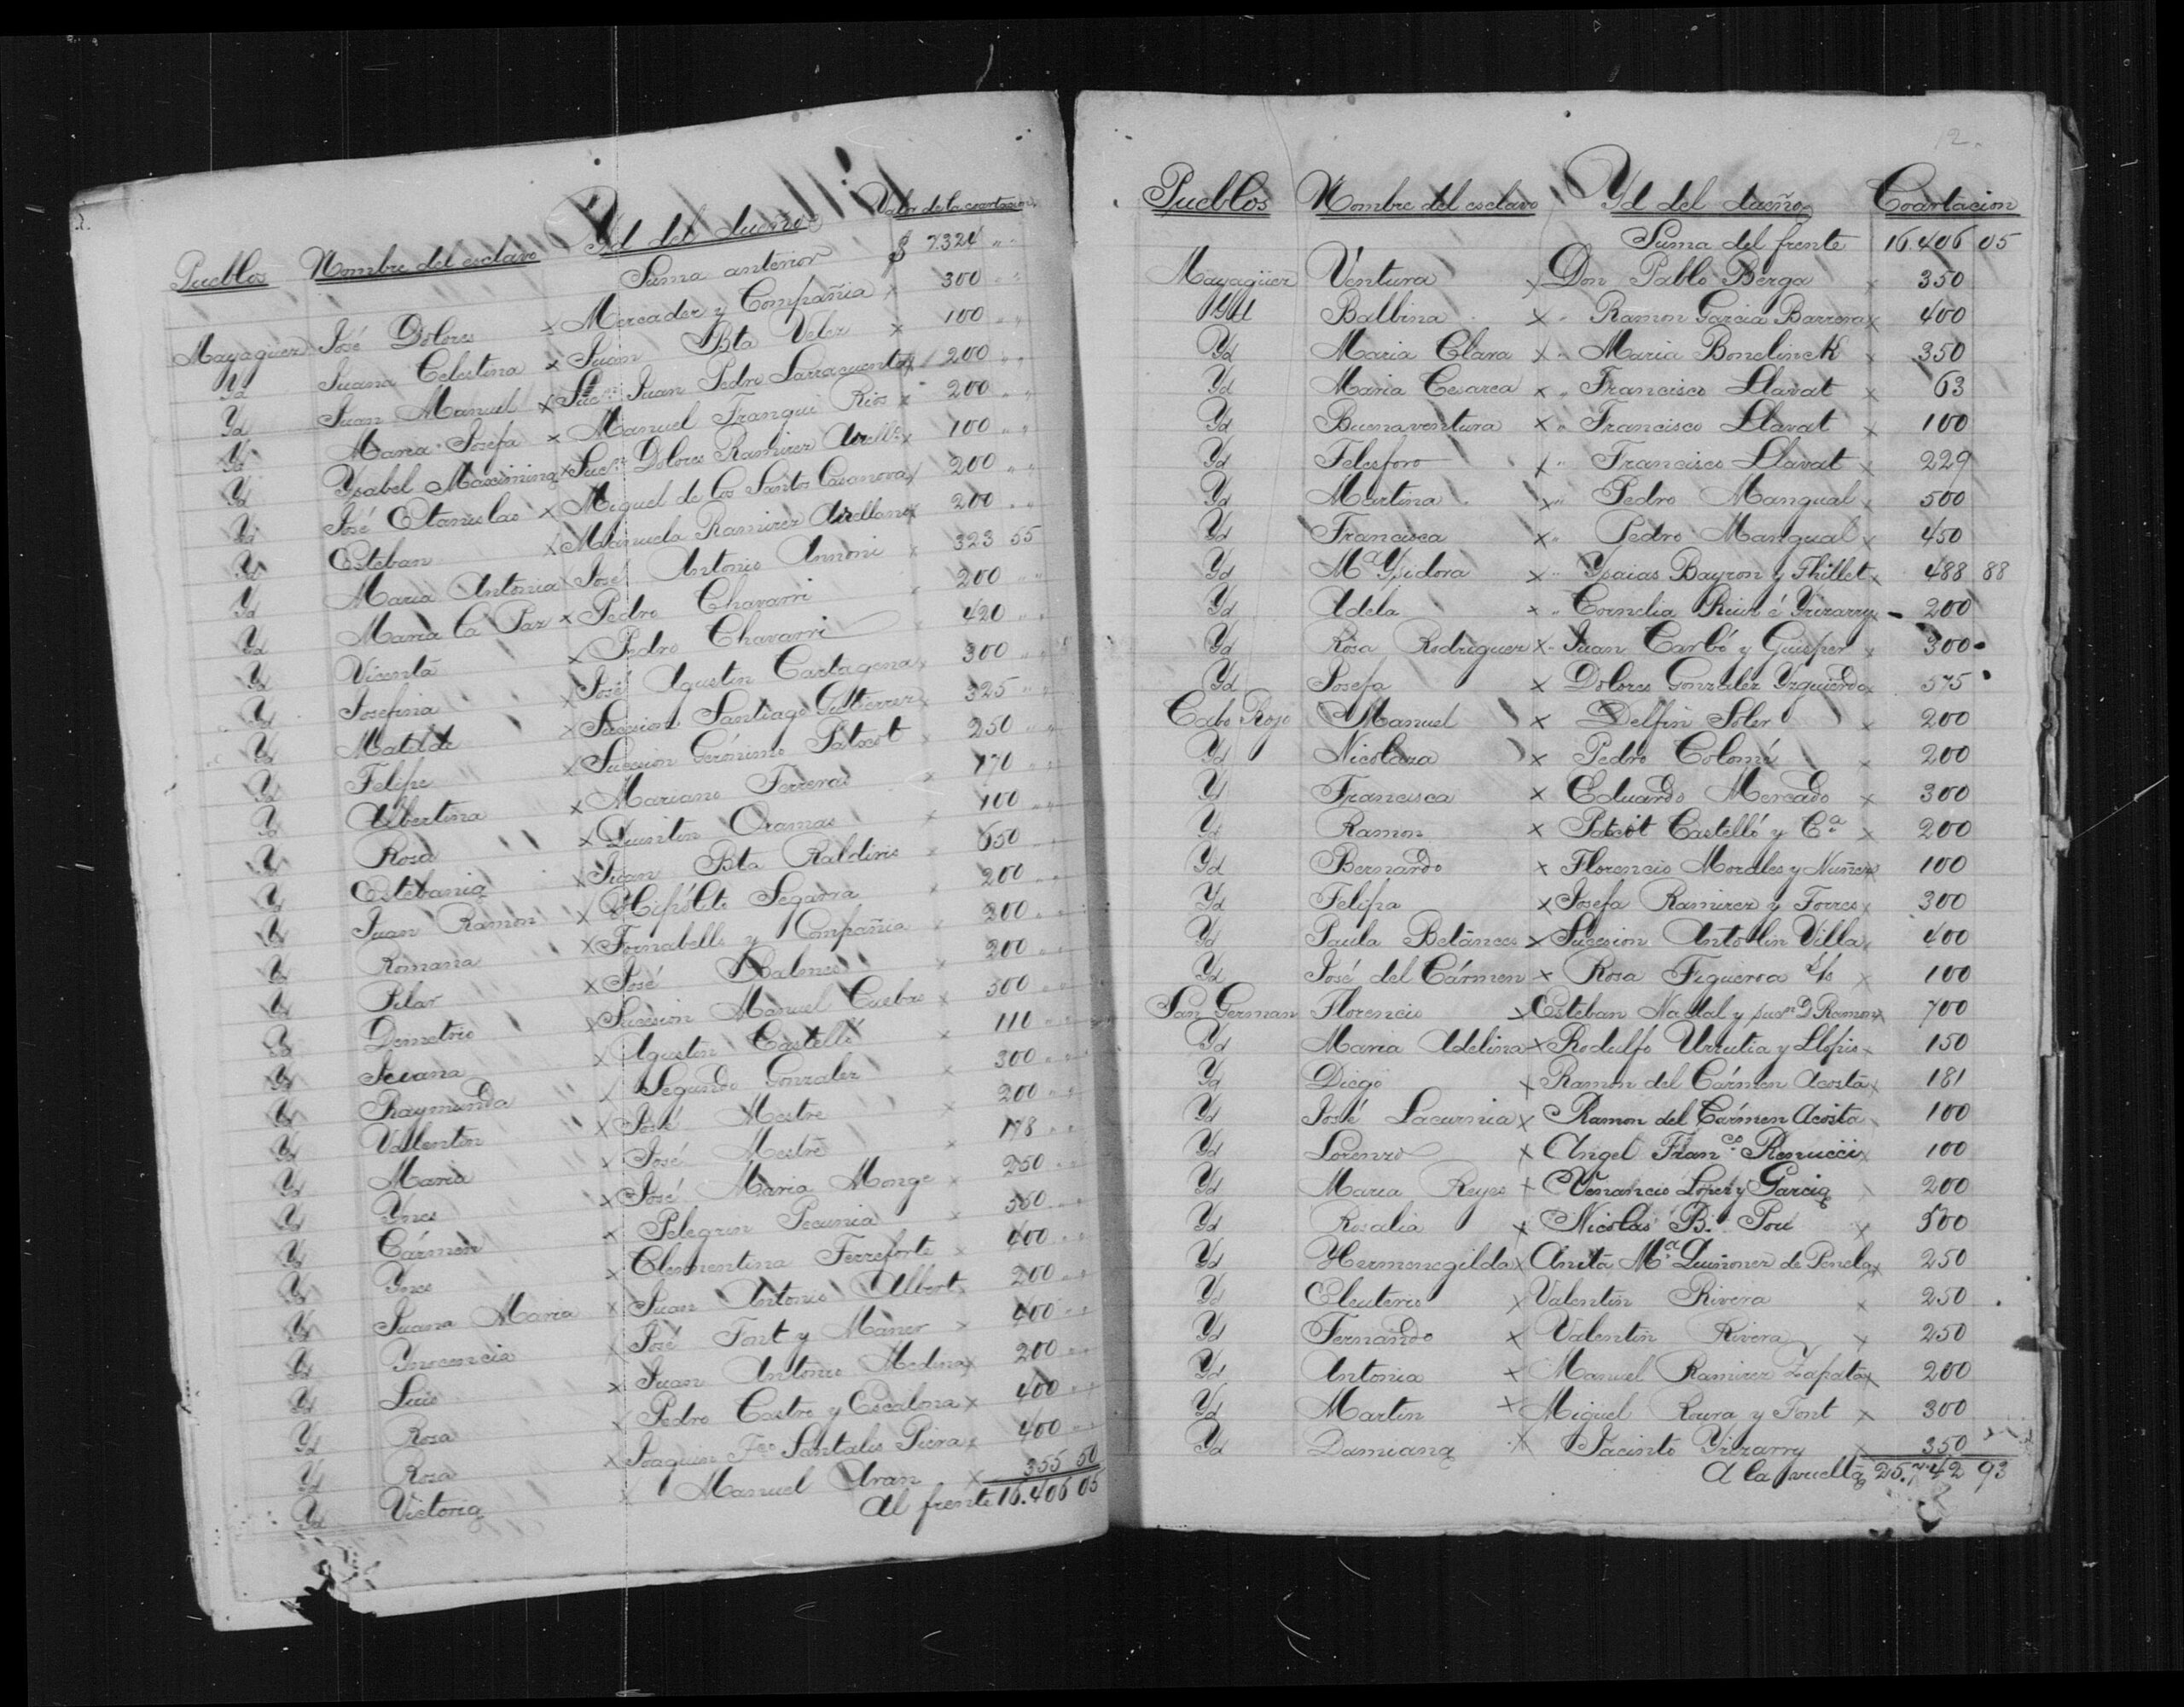 Pueblos Nombre del esclavo Yd del dueño Valor de la coartacion
Suma anterior $ 7.324 " "
Mayagüez José Dolores x Mercader y Compañia x 300 " "
Yd Juana Celestina x Juan Bta Velez x 100 " "
Yd Juan Manuel x Sucn. Juan Pedro Larracuenta x 200 " "
Yd Maria Josefa x Manuel Franqui Rios x 200 " "
Yd Ysabel Maximina x Sucn. Dolores Ramirez Arello. x 100 " "
Yd José Etanislao x Miguel de los Santos Casanova x 200 " "
Yd Esteban x Manuela Ramirez Arellano x 200 " "
Yd Maria Antonia José Antonio Annoni x 323 55
Yd Maria la Paz x Pedro Chavarri x 200 " "
Yd Vicenta x Pedro Chavarri 420 " "
Yd Josefina x José Agustin Cartagena x 300 " "
Yd Matilde x Sucesion Santiago Guttierrez x 325 " "
Yd Felipe x Sucesion Gerónimo Patxot x 250 " "
Yd Albertina x Mariano Ferreras x 170 " "
Yd Rosa x Quintin Oramas x 100 " "
Yd Estebania x Juan Bta Raldiris x 650 " "
Yd Juan Ramon x Hipólito Segarra x 200 " "
Yd Romana x Fornabells y Compañia x 200 " "
Yd Pilar x José Balencs x 200 " "
Yd Demetrio x Sucesion Manuel Cuebas x 500 " "
Yd Juana x Agustin Castelló x 110 " "
Yd Raymunda x Segundo Gonzalez x 300 " "
Yd Valentin x José Mestre x 200 " "
Yd Maria x José Mestre x 178 " "
Yd Ynes x José Maria Monge x 250 " "
Yd Cármen x Pelegrin Pecunia x 350 " "
Yd Ynes x Clementina Ferreforte x 400 " "
Yd Juana Maria x Juan Antonio Albert x 200 " "
Yd Ynocencia x José Font y Maner x 400 " "
Yd Luis x Juan Antonio Medina x 200 " "
Yd Rosa x Pedro Castro y Escalona x 400 " "
Yd Rosa x Joaquin Fco Santalis Piera x 400 " "
Yd Victoria x Manuel Aran x 355 50
Al frente 16.406 05
2.
Pueblos Nombre del esclavo Yd del dueño Coartacion
Suma del frente 16.406 05
Mayagüez Ventura x Don Pablo Berga x 350
Yd Balbina x " Ramon Garcia Barrera x 400
Yd Maria Clara x " Maria Bonelinck x 350
Yd Maria Cesarea x " Francisco Llavat x 63
Yd Buenaventura x " Francisco Llavat x 100
Yd Telesforo x " Francisco Llavat x 229
Yd Martina x " Pedro Mangual x 500
Yd Francisca x " Pedro Mangual x 450
Yd Ma Ysidora x " Ysaias Bayron y Thillet x 488 88
Yd Adela x " Cornelia Rius é Yrizarry x 200
Yd Rosa Rodriguez x " Juan Carbó y Guisper x 300
Yd Josefa x Dolores Gonzalez Yzquierdo x 575
Cabo Rojo Manuel x Delfin Soler x 200
Yd Nicolaza x Pedro Colomé x 200
Yd Francisca x Eduardo Mercado x 300
Yd Ramon x Patxot Castelló y Ca x 200
Yd Bernardo x Florencio Morales y Nuñez x 100
Yd Felipa x Josefa Ramirez y Torres x 300
Yd Paula Betánces x Sucesion Antolin Villa x 400
Yd José del Cármen x Rosa Figueroa x 100
San German Florencio x Esteban Nadal y sucon D Ramon x 700
Yd Maria Adelina x Rodulfo Urrutia y Llópis x 150
Yd Diego x Ramon del Cármen Acosta x 181
Yd José Lacurnia x Ramon del Cármen Acosta x 100
Yd Lorenzo x Angel Franco Renucci x 100
Yd Maria Reyes x Venancio Lopez y Garcia x 200
Yd Rosalia x Nicolas B. Pou x 500
Yd Hermenegilda x Anita Ma Quiñonez de Ponela x 250
Yd Eleuterio x Valentin Rivera x 250
Yd Fernando x Valentin Rivera x 250
Yd Antonia x Manuel Ramirez Zapata x 200
Yd Martin x Miguel Roura y Font x 300
Yd Damiana x Jacinto Yrizarry x 350
A la vuelta 25.742 93